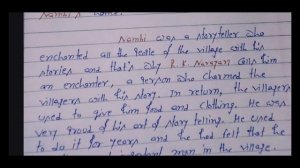 Nambi's name.
Nambi was a storyteller who
enchanted all the people of the village with his
stories and that's why R.K. Narayan calls him
an enchanter, a person who charmed the
villagers with his story. In return, the villagers
used to give him food and clothing. He was
very proud of his art of story telling. He used
to do it for years and he had felt that he
man in the village.